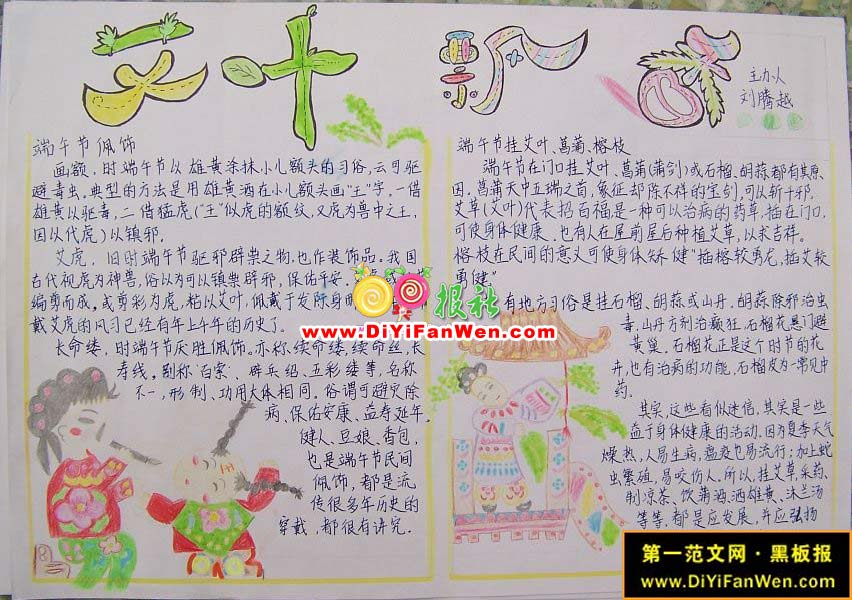 艾叶飘香
主办人
刘腾越
端午节佩饰
画额,时端午节以雄黄涂抹小儿额头的习俗,云可驱
避毒虫。典型的方法是用雄黄酒在小儿额头画"王"字,一借
雄黄以驱毒,二借猛虎("王"似虎的额纹,又虎为兽中之王,
因以代虎)以镇邪。
艾虎,旧时端午节驱邪辟祟之物,也作装饰品。我国
古代视虎为神兽,俗以为可以镇祟辟邪,保佑平安。
编剪而成,或剪彩为虎,粘以艾叶,佩戴于发际身
戴艾虎的风习已经有年上千年的历史了。
长命缕,时端午节厌胜佩饰。亦称续命缕、续命丝、长
寿线,别称"百索"、辟兵绍、五彩缕等,名称
不一,形制、功用大体相同。俗谓可避灾除
病、保佑安康、益寿延年。
健人、豆娘、香包,
也是端午节民间
佩饰,都是流
传很多年历史的
穿戴,都很有讲究。
端午节挂艾叶、菖蒲、榕枝
端午节在门口挂艾叶、菖蒲(蒲剑)或石榴、胡蒜都有其原
因。菖蒲天中五瑞之首,象征却除不祥的宝剑,可以斩千邪。
艾草(艾叶)代表招百福是一种可以治病的药草,插在门口,
可使身体健康。也有人在屋前屋后种植艾草,以求吉祥。
榕枝在民间的意义可使身体矫健"插榕较勇龙,插艾较
勇健"
有地方习俗是挂石榴、胡蒜或山丹。胡蒜除邪治虫
毒,山丹方剂治癫狂。石榴花悬门避
黄巢。石榴花正是这个时节的花
卉,也有治病的功能,石榴皮为一常见中
药。
其实,这些看似迷信,其实是一些
益于身体健康的活动。因为夏季天气
燥热,人易生病,瘟疫也易流行;加上蛇
虫繁殖,易咬伤人。所以,挂艾草,采药、
制凉茶、饮蒲酒,洒雄黄、沐兰汤
等等,都是应发展,并应强扬
报社
www.DiYiFanWen.com
第一范文网·黑板报
www.DiYiFanWen.com